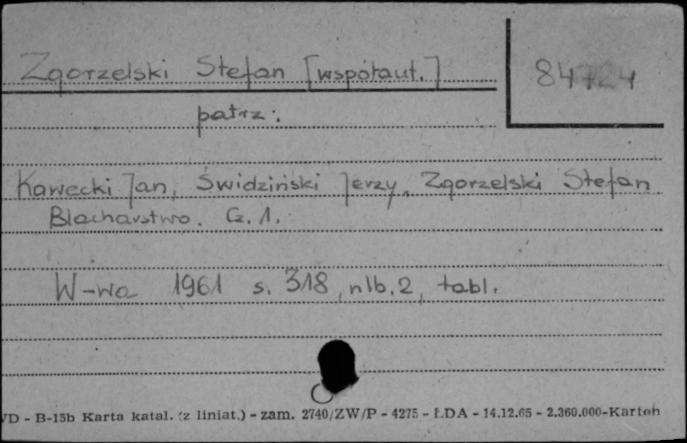 Zgorzelski Stefan [współaut.]
84724
patrz:
Kawecki Jan, Świdziński Jerzy, Zgorzelski Stefan
Blacharstwo. Cz. 1.
W-wa 1961 s. 318, nlb. 2, tabl.
VD - B-15b Karta katal. (z liniat.) - zam. 2740/ZW/P - 4275 - ŁDA - 14.12.65 - 2.360.000-Karton